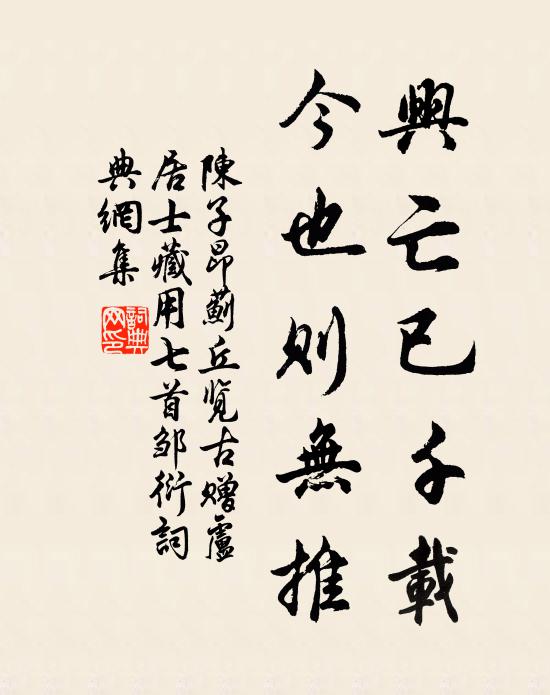 興亡已千載
今也則無推
陳子昂薊丘览古赠盧
居士藏用七首邹衍詞
典網集
詞典網印